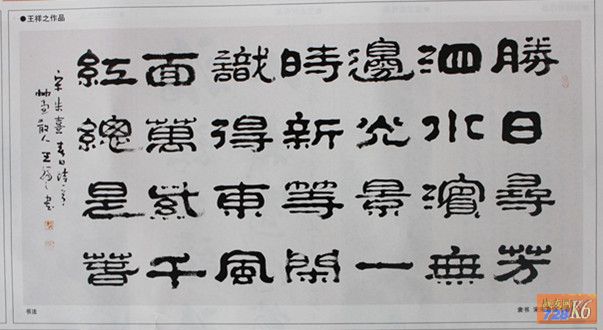 ●王祥之作品
勝日尋芳
泗水濱無
邊光景一
時新等閑
識得東風
面萬紫千
紅總是萅
宋朱熹春日詩
散人王祥之書
书法
隶书 宋
K6
728